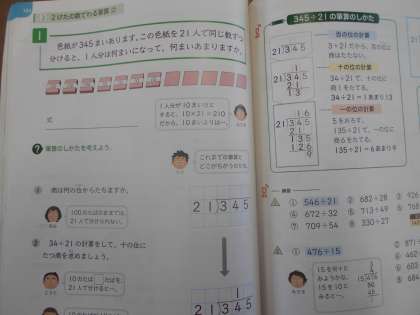 2 2けたの数でわる筆算 ②
1
色紙が345まいあります。この色紙を21人で同じ数ずつ
分けると、1人分は何まいになって、何まいあまりますか。
式
1人分が10まいだと
すると、10×21=210
だから、10まいよりは…。
? 筆算のしかたを考えよう。
これまでの筆算と
どこがちがうのかな。
① 商は何の位からたちますか。
100のたばのままでは、
21人で分けられない。
21)345
② 34÷21の計算をして、十の位に
たつ商を求めましょう。
10のたば
たばを、
21人で分けると…。
1
21)345
345÷21の筆算のしかた
百の位の計算
21)345
3÷21だから、百の位に
商はたたない。
十の位の計算
1
21)345
21
13
34÷21で、十の位に
商1をたてる。
34÷21=1あまり13
一の位の計算
16
21)345
21
135
126
9
5をおろす。
135÷21で、一の位に
商6をたてる。
135÷21=6あまり9
練習
① 546÷21
② 682÷28
④ 672÷32
⑤ 713÷49
⑦ 709÷54
⑧ 330÷27
① 476÷15
15を何十と
みるかな…。
15を10と
みると…。